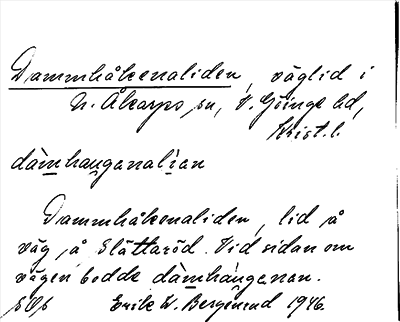 Dammhåkenaliden, väglid i
N. Åkarps sn, V. Göinge hd,
Krist. l.
dàmhau̯genalian
Dammhåkenaliden, lid på
väg på Slättaröd. Vid sidan om
vägen bodde dàmhau̯genan.
Erik W. Berglund 1946.